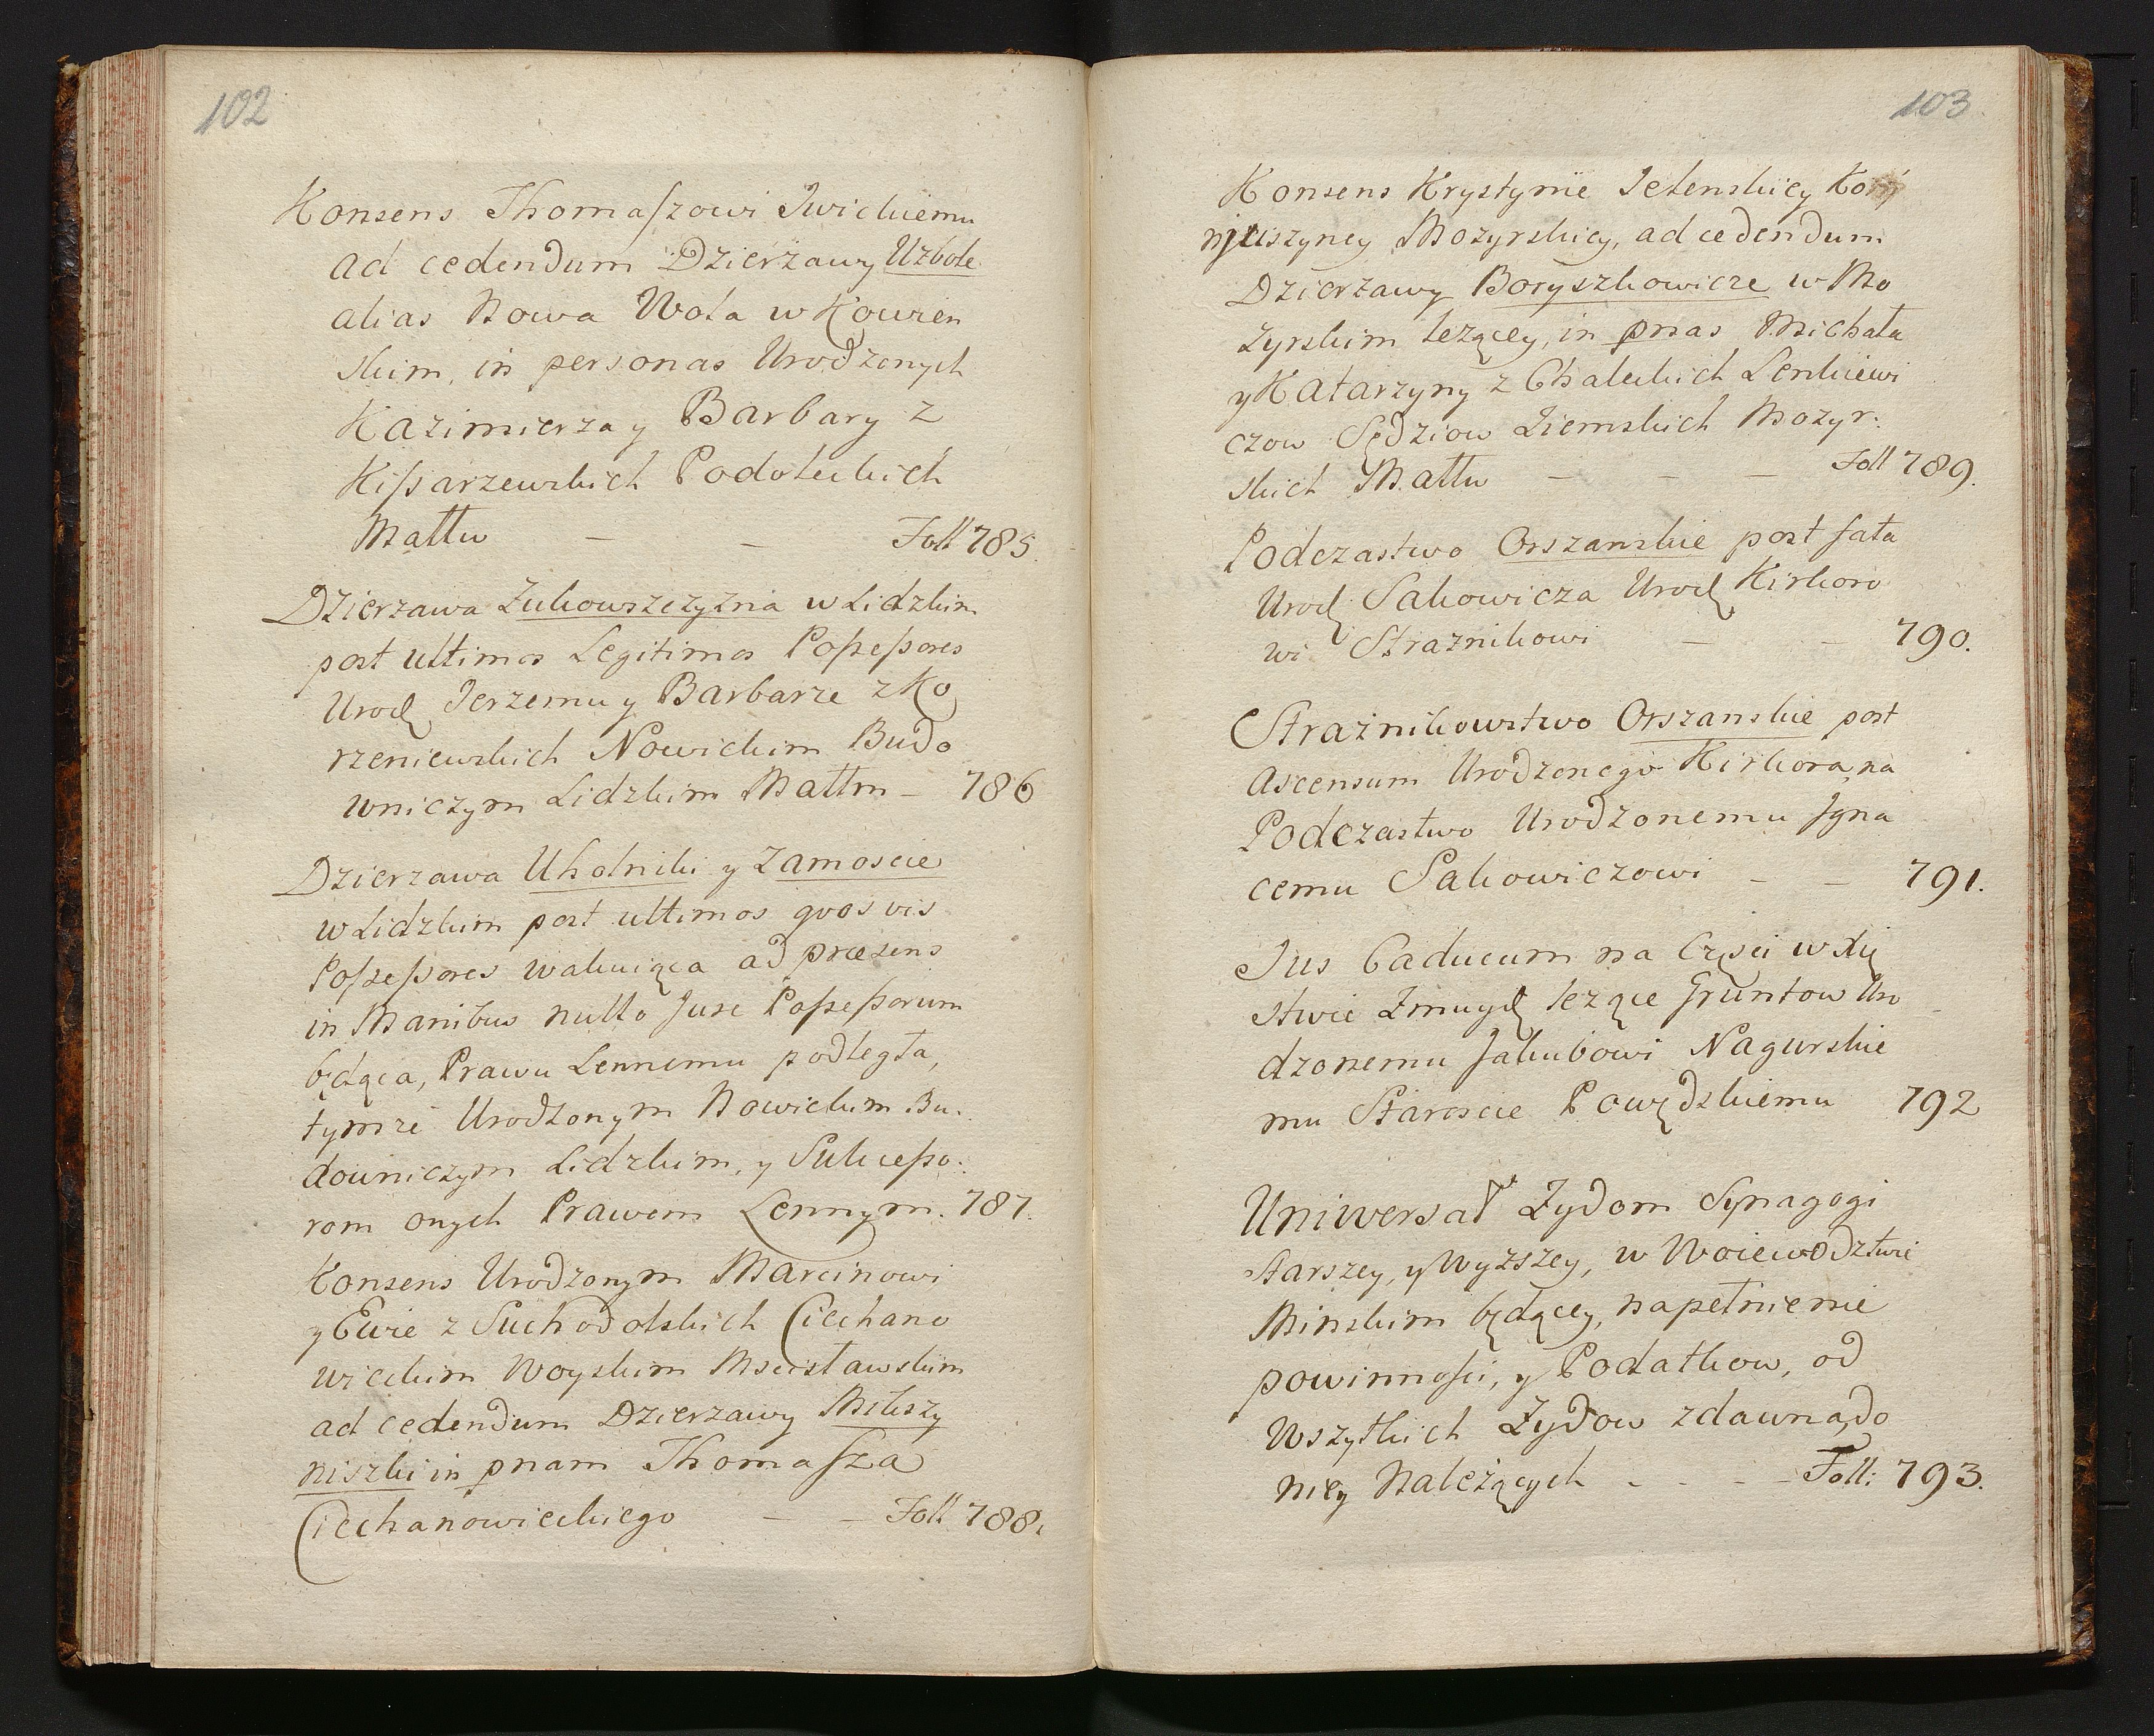 102
Konsens Thomaszowi Iwickiemu
ad cedendum Dzierżawy Uzbole
alias Nowa Wola w Kowien
skim, in personas Urodzonych
Kazimierza y Barbary z
Kissarzewskich Podoleckich
Małłu — — Foll 785.
Dzierzawa Żukowszczyzna w Lidzkim
post ultimos Legitimos Possessores
Urodz Jerzemu y Barbarze z Ko
rzeniewskich Nowickim Budo
wniczym Lidzkim Małłm — 786
Dzierzawa Uholniki y Zamoscie
w Lidzkim post ultimos quos vis
Possessores wakuiąca ad præsens
in Manibus nullo Jure Possessorum
będąca, Prawu Lennemu podległa,
tymże Urodzonym Nowickim Bu.
downiczym Lidzkim, y Sukcesso.
rom onych Prawem Lennym. 787.
Konsens Urodzonym Marcinowi
y Ewie z Suchodolskich Ciechano
wieckim Woyskim Mscisławskim
ad cedendum Dzierzawy Mikszy
niszki in pnam Thomasza
Ciechanowieckiego — — Foll 788.
103
Konsens Krystynie Jelenskiey Kon
njuszyney Mozyrskiey, ad cedendum
Dzierzawy Boryszkowicze w Mo
zyrskim leżącey, in pnas Michała
y Katarzyny z Chaleckich Lenkiewi
czow Sędziow Ziemskich Mozyr.
skich Małłu — — — Foll 789.
Podczastwo Orszanskie post fata
Urodz Sakowicza Urodz Kirkoro
wi Straznikowi — — 790.
Strażnikowstwo Orszanskie post
Ascensum Urodzonego Kirkora, na
Podczastwo Urodzonemu Jgna
cemu Sakowiczowi — — 791.
Jus Caducum na Częsci w Xię
stwie Żmuydz leżące Gruntow Uro
dzonemu Jakubowi Nagurskie
mu Staroscie Powędzkiemu 792
Uniwersał Żydom Synagogi
starszey, y Wyższey, w Woiewodztwie
Minskim będącey, na pełnienie
powinnosci, y Podatkow, od
Wszytkich Żydow zdawna, do
niey Należących - - - — Foll: 793.